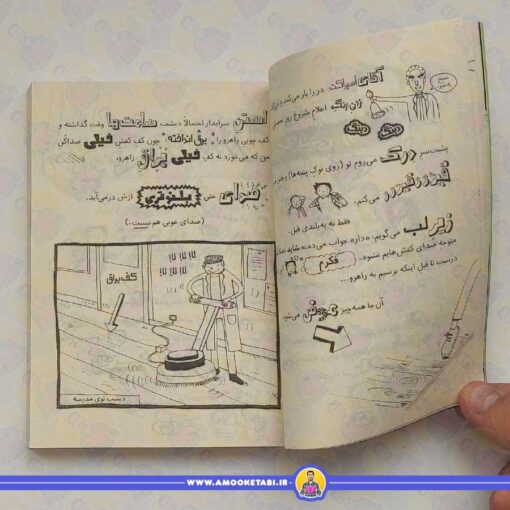 آقای اسپراکت در را باز می‌کند و برای
زان‌زنگ اعلام شروع روز تحصیلی
دینگ دینگ
پشت سر درک می‌روم تو (روی نوک پنجه‌ها)
می‌کنم،
فقط نه به بلندی قبل.
زیر لب می‌گویم: «داره جواب می‌ده،» شاید اصلاً
متوجه صدای کفش‌هایم نشود.
فکرم
درست تا قبل اینکه برسیم به راهرو...
آن‌جا همه‌چیز عوض می‌شود
سرایدار احتمالاً دیشب ساعت‌ها وقت گذاشته و
کف چوبی راهرو را برق انداخته چون کف کفش خیلی صداکن
من که می‌خورد به کف خیلی براق راهرو،
صدای حتی بلندتری ازش درمی‌آید.
(صدای خوبی هم نیست.)
کف براق
دیشب توی مدرسه
WWW.AMOOKETABI.IR